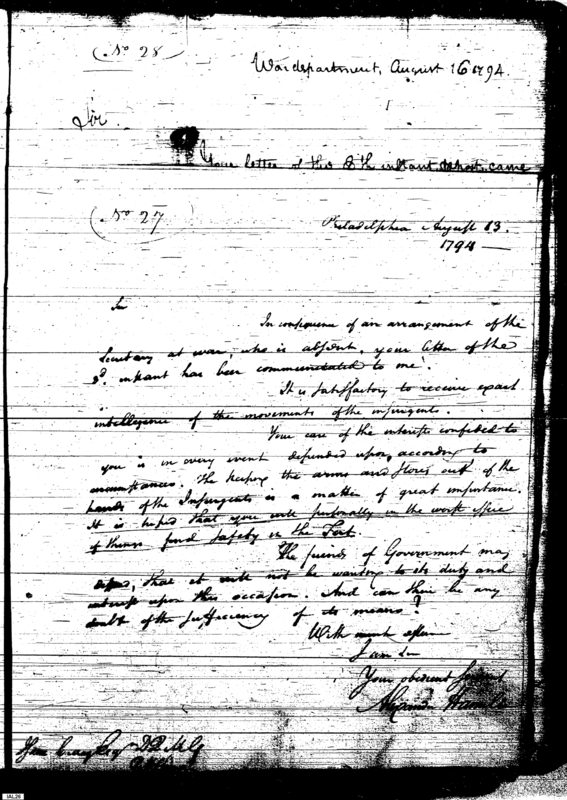 No 28
War department, August 16 1794.
Sir.
Your letter of the 8th instant came
No 27
Philadelphia August 13.
1794
Sir
In consequence of an arrangement of the
Secretary at war, who is absent, your letter of the
3d. instant has been communicated to me.
It is satisfactory to receive exact
intelligence of the movements of the insurgents.
Your care of the interests confided to
you is in every event depended upon, according to
circumstances. The keeping the arms and stores out of the
hands of the Insurgents is a matter of great importance.
It is hoped that you will personally in the worst issue
of things find safety in the Fort.
The friends of Government may
, that it will not be wanting to its duty and
interest upon this occasion. And can there be any
doubt of the sufficiency of its means?
With much esteem
I am Sir
Your obedient servant
Alexander Hamilton
Isaac Craig Esqr D Q M G